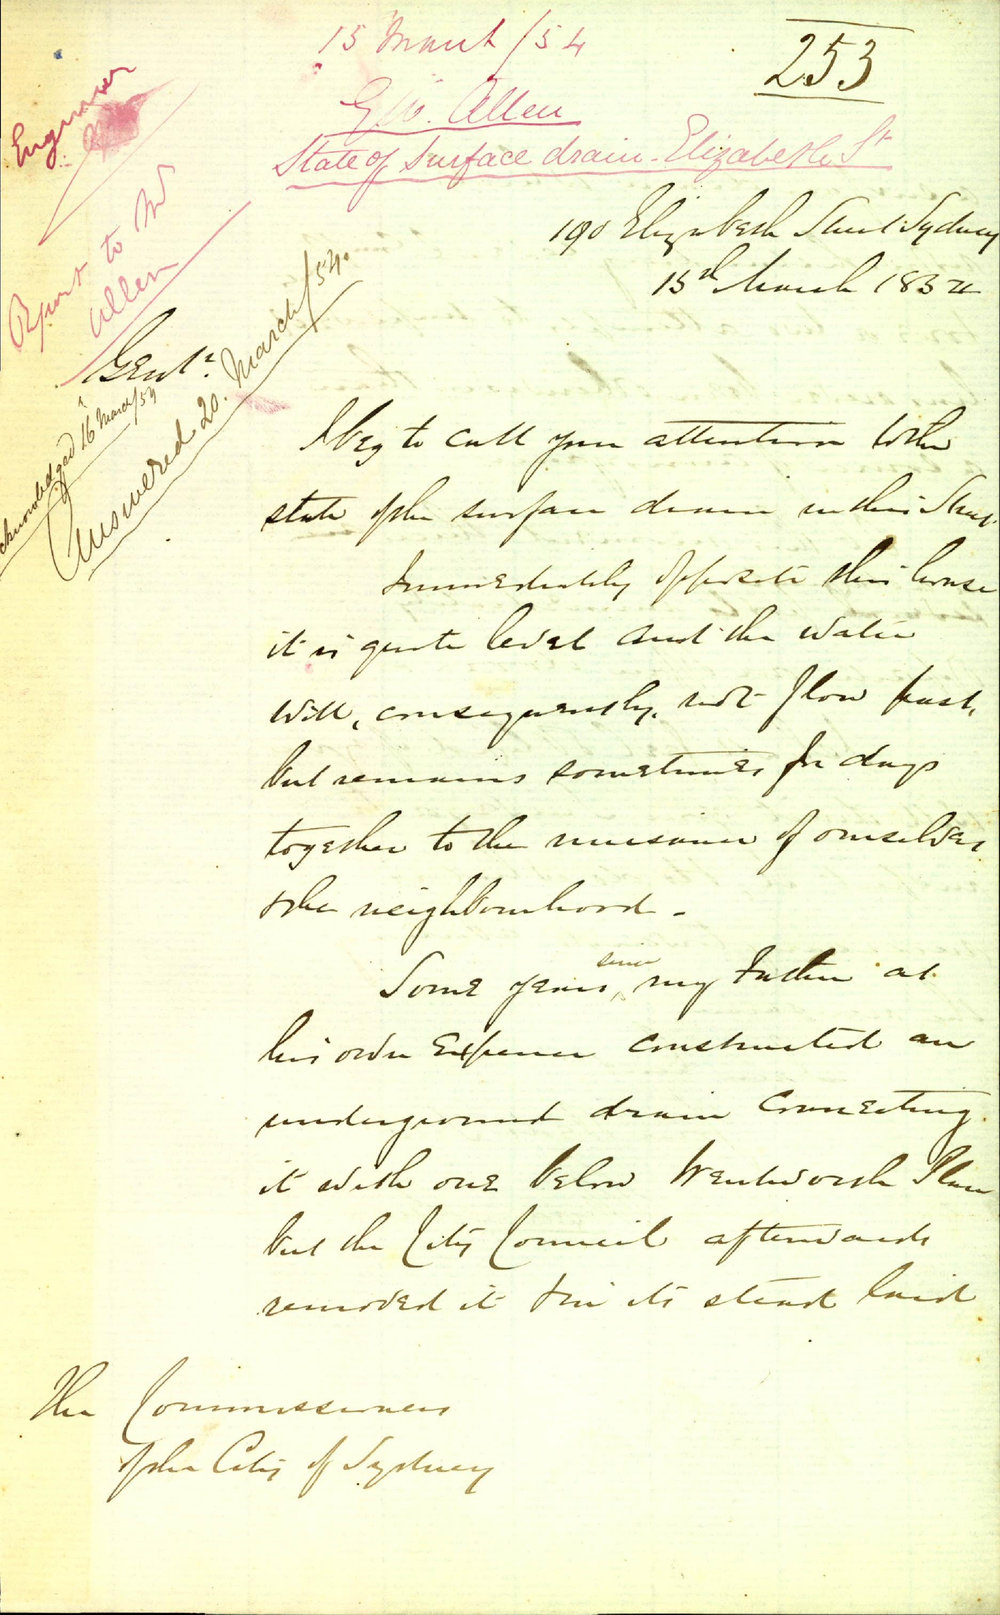 15 March /54
253
G. W. Allen
State of Surface drain - Elizabeth St
Engineer
Report to Mr
Allen
190 Elizabeth Street Sydney
15th March 1854
Gentn.
Acknowledged 16 March/54
Answered 20. March/54.
I beg to call your attention to the
state of the surface drain in this Street
Immediately opposite this house
it is quite level and the water
will, consequently, not flow past,
but remains sometimes for days
together to the nuisance of ourselves
& the neighbourhood -
Some years since my Father at
his own Expense constructed an
underground drain connecting
it with one below Wentworth Place
but the City Council afterwards
removed it & in its stead laid
The Commissioners
of the City of Sydney